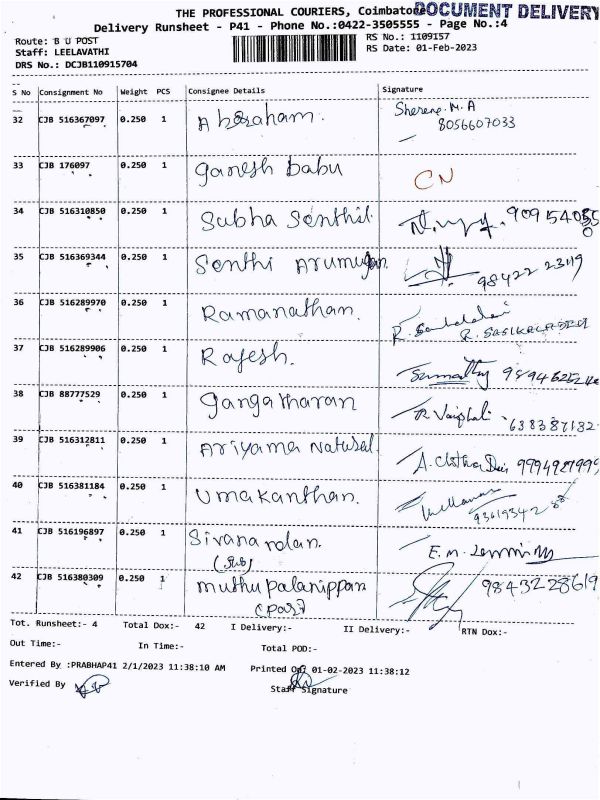 THE PROFESSIONAL COURIERS, Coimbatore
DOCUMENT DELIVERY
Delivery Runsheet - P41 - Phone No.:0422-3505555 - Page No.:4
Route: B U POST
RS No.: 1109157
Staff: LEELAVATHI
RS Date: 01-Feb-2023
DRS No.: DCJB110915704
S No Consignment No Weight PCS Consignee Details Signature
32 CJB 516367097 0.250 1 Abraham. Sherene. M. A
8056607033
33 CJB 176097 0.250 1 Ganesh babu CN
34 CJB 516310850 0.250 1 Subha Senthil.
35 CJB 516369344 0.250 1 Senthi Arumugan. 98422 23119
36 CJB 516289970 0.250 1 Ramanathan.
37 CJB 516289906 0.250 1 Rajesh.
38 CJB 88777529 0.250 1 Gangatharan
39 CJB 516312811 0.250 1 Ariyama Natural.
40 CJB 516381184 0.250 1 Umakanthan.
41 CJB 516196897 0.250 1 Sivanandan.
42 CJB 516380309 0.250 1 muthu palanippan 9843228619
Tot. Runsheet:- 4 Total Dox:- 42 I Delivery:- II Delivery:- RTN Dox:-
Out Time:- In Time:- Total POD:-
Entered By :PRABHAP41 2/1/2023 11:38:10 AM Printed On: 01-02-2023 11:38:12
Verified By
Staff Signature